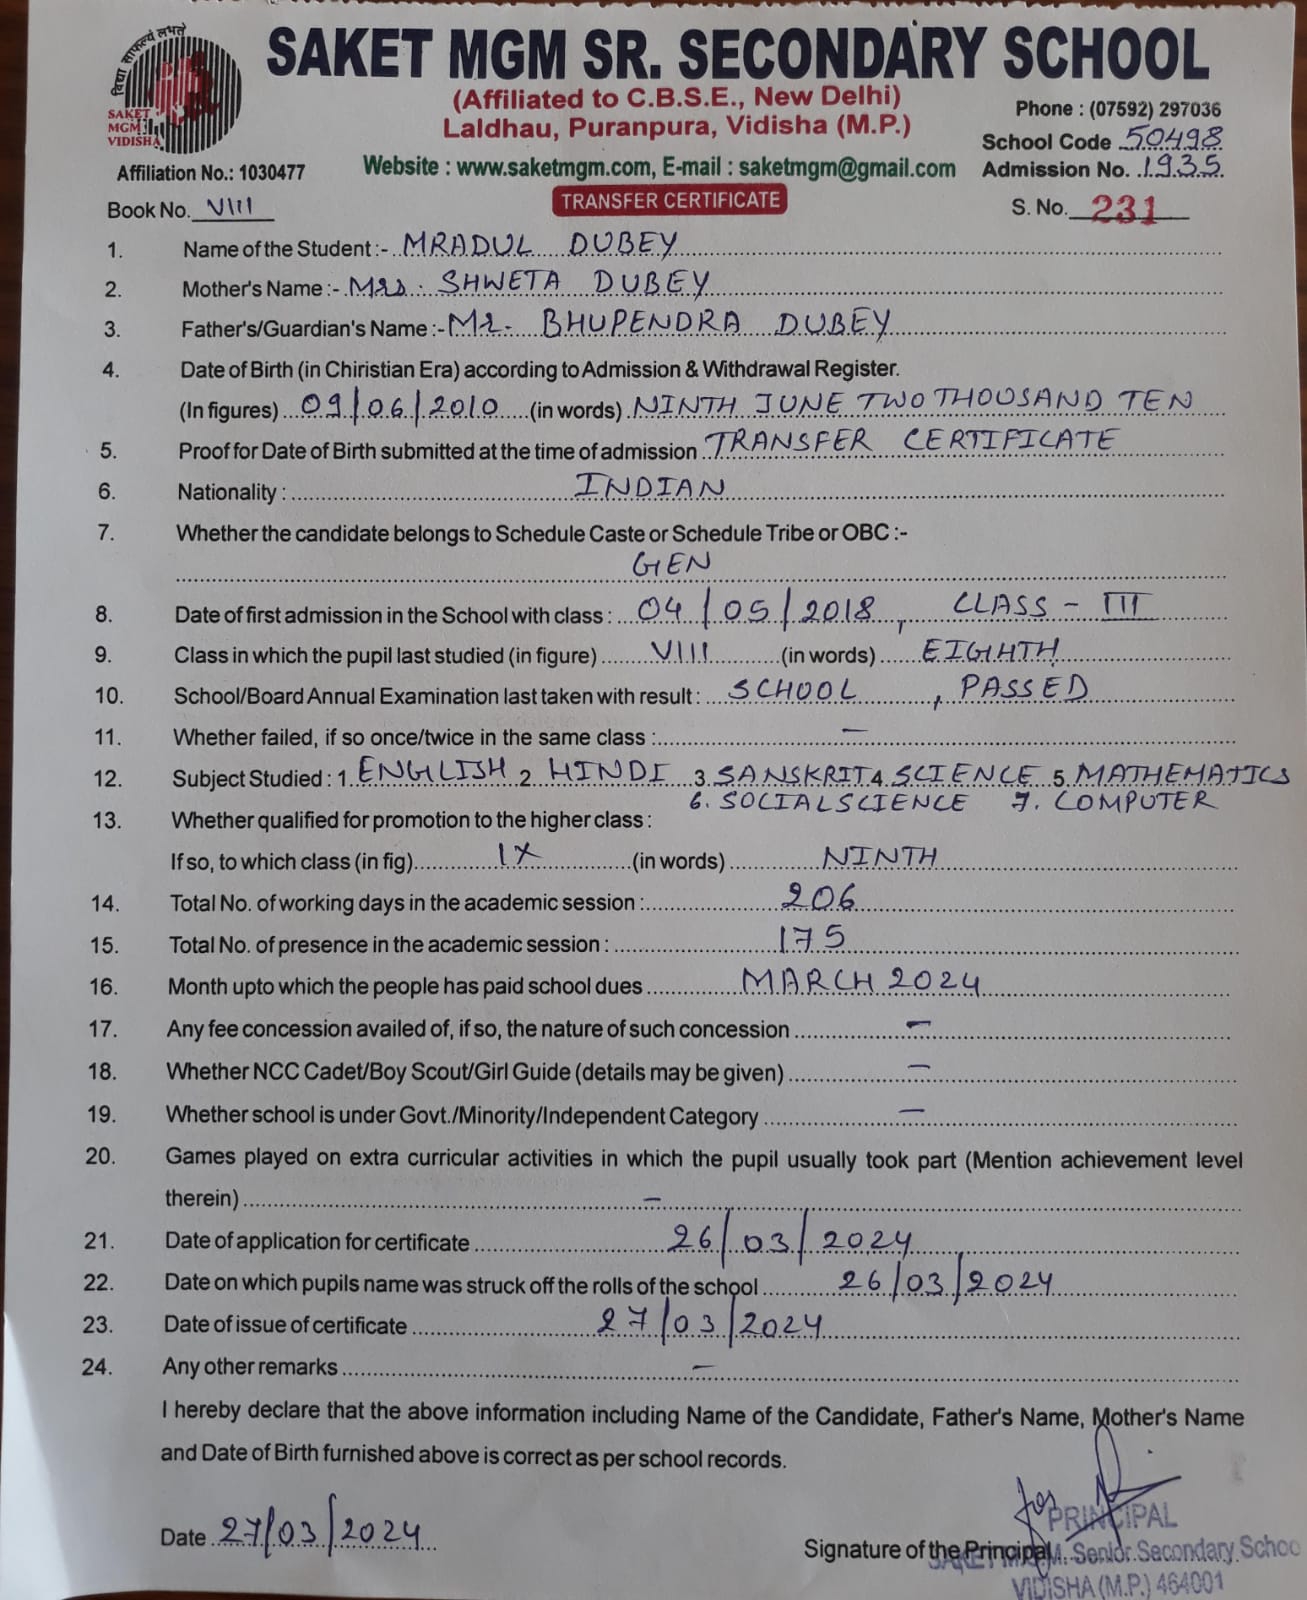 विद्या साफल्यं लभते
SAKET
MGM
VIDISHA
SAKET MGM SR. SECONDARY SCHOOL
(Affiliated to C.B.S.E., New Delhi)
Laldhau, Puranpura, Vidisha (M.P.)
Phone : (07592) 297036
School Code 50498
Affiliation No.: 1030477
Website : www.saketmgm.com, E-mail : saketmgm@gmail.com
Admission No. 1935
Book No. VIII
TRANSFER CERTIFICATE
S. No. 231
1. Name of the Student :- MRADUL DUBEY
2. Mother's Name :- Mrs. SHWETA DUBEY
3. Father's/Guardian's Name :- Mr. BHUPENDRA DUBEY
4. Date of Birth (in Chiristian Era) according to Admission & Withdrawal Register.
(In figures) 09/06/2010 (in words) NINTH JUNE TWO THOUSAND TEN
5. Proof for Date of Birth submitted at the time of admission TRANSFER CERTIFICATE
6. Nationality : INDIAN
7. Whether the candidate belongs to Schedule Caste or Schedule Tribe or OBC :-
GEN
8. Date of first admission in the School with class : 04/05/2018, CLASS - III
9. Class in which the pupil last studied (in figure) VIII (in words) EIGHTH
10. School/Board Annual Examination last taken with result : SCHOOL, PASSED
11. Whether failed, if so once/twice in the same class : -
12. Subject Studied : 1. ENGLISH 2. HINDI 3. SANSKRIT 4. SCIENCE 5. MATHEMATICS
6. SOCIAL SCIENCE 7. COMPUTER
13. Whether qualified for promotion to the higher class :
If so, to which class (in fig) IX (in words) NINTH
14. Total No. of working days in the academic session : 206
15. Total No. of presence in the academic session : 175
16. Month upto which the people has paid school dues MARCH 2024
17. Any fee concession availed of, if so, the nature of such concession -
18. Whether NCC Cadet/Boy Scout/Girl Guide (details may be given) -
19. Whether school is under Govt./Minority/Independent Category -
20. Games played on extra curricular activities in which the pupil usually took part (Mention achievement level
therein) -
21. Date of application for certificate 26/03/2024
22. Date on which pupils name was struck off the rolls of the school 26/03/2024
23. Date of issue of certificate 27/03/2024
24. Any other remarks -
I hereby declare that the above information including Name of the Candidate, Father's Name, Mother's Name
and Date of Birth furnished above is correct as per school records.
for
PRINCIPAL
Date 27/03/2024
Signature of the Principal
SAKET M.G.M. Senior Secondary Schoo
VIDISHA (M.P.) 464001